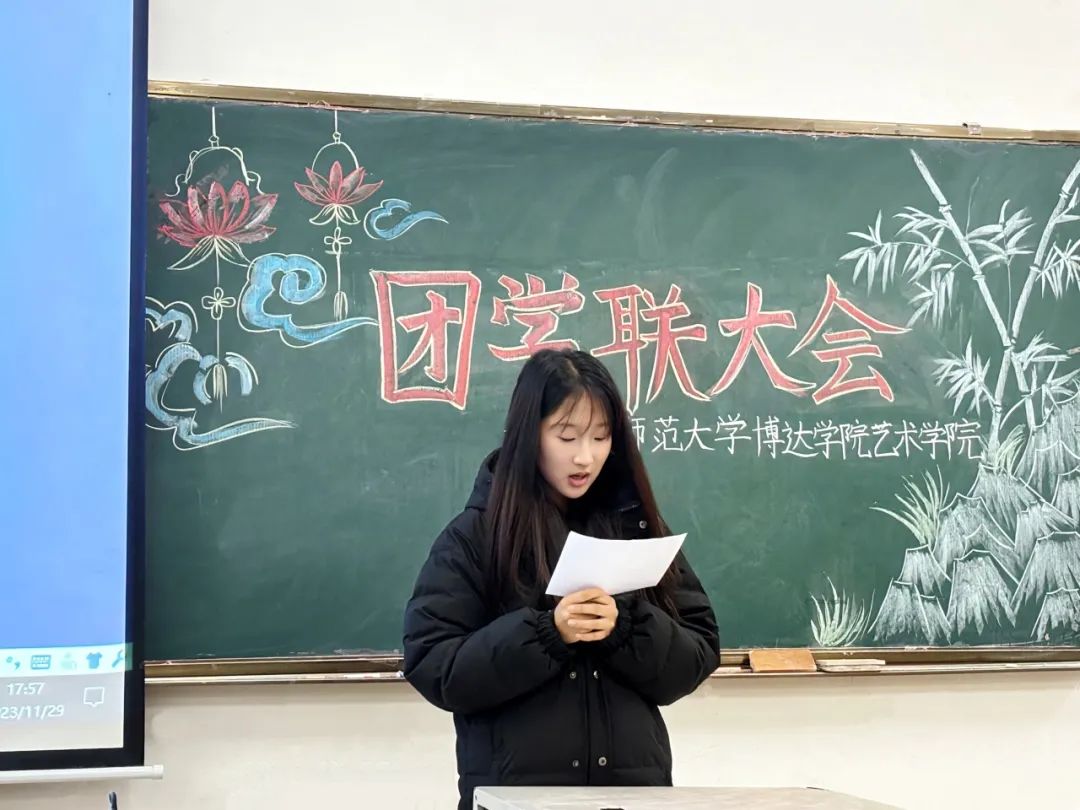 团学联大会
师范大学博达学院艺术学院
17:57
23/11/29